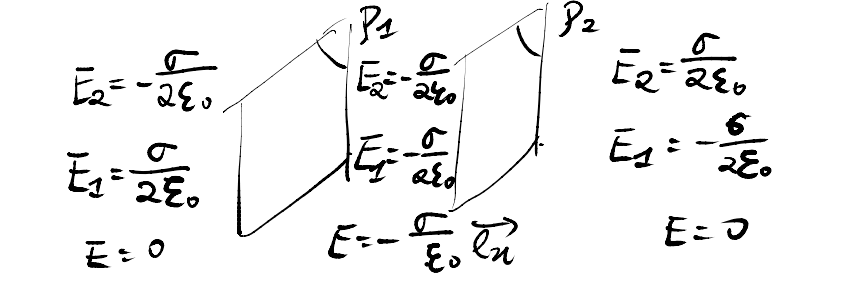 P1
P2
E̅₂ = -σ/2ε₀
E̅₁ = σ/2ε₀
E = 0
E̅₂ = -σ/2ε₀
E̅₁ = -σ/2ε₀
E = -σ/ε₀ e⃗ₙ
E̅₂ = σ/2ε₀
E̅₁ = -σ/2ε₀
E = 0